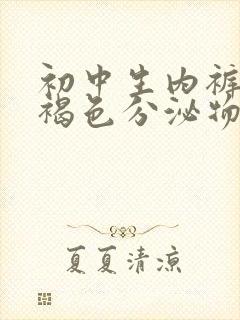 初中生内裤
褐色分泌物
夏夏清凉